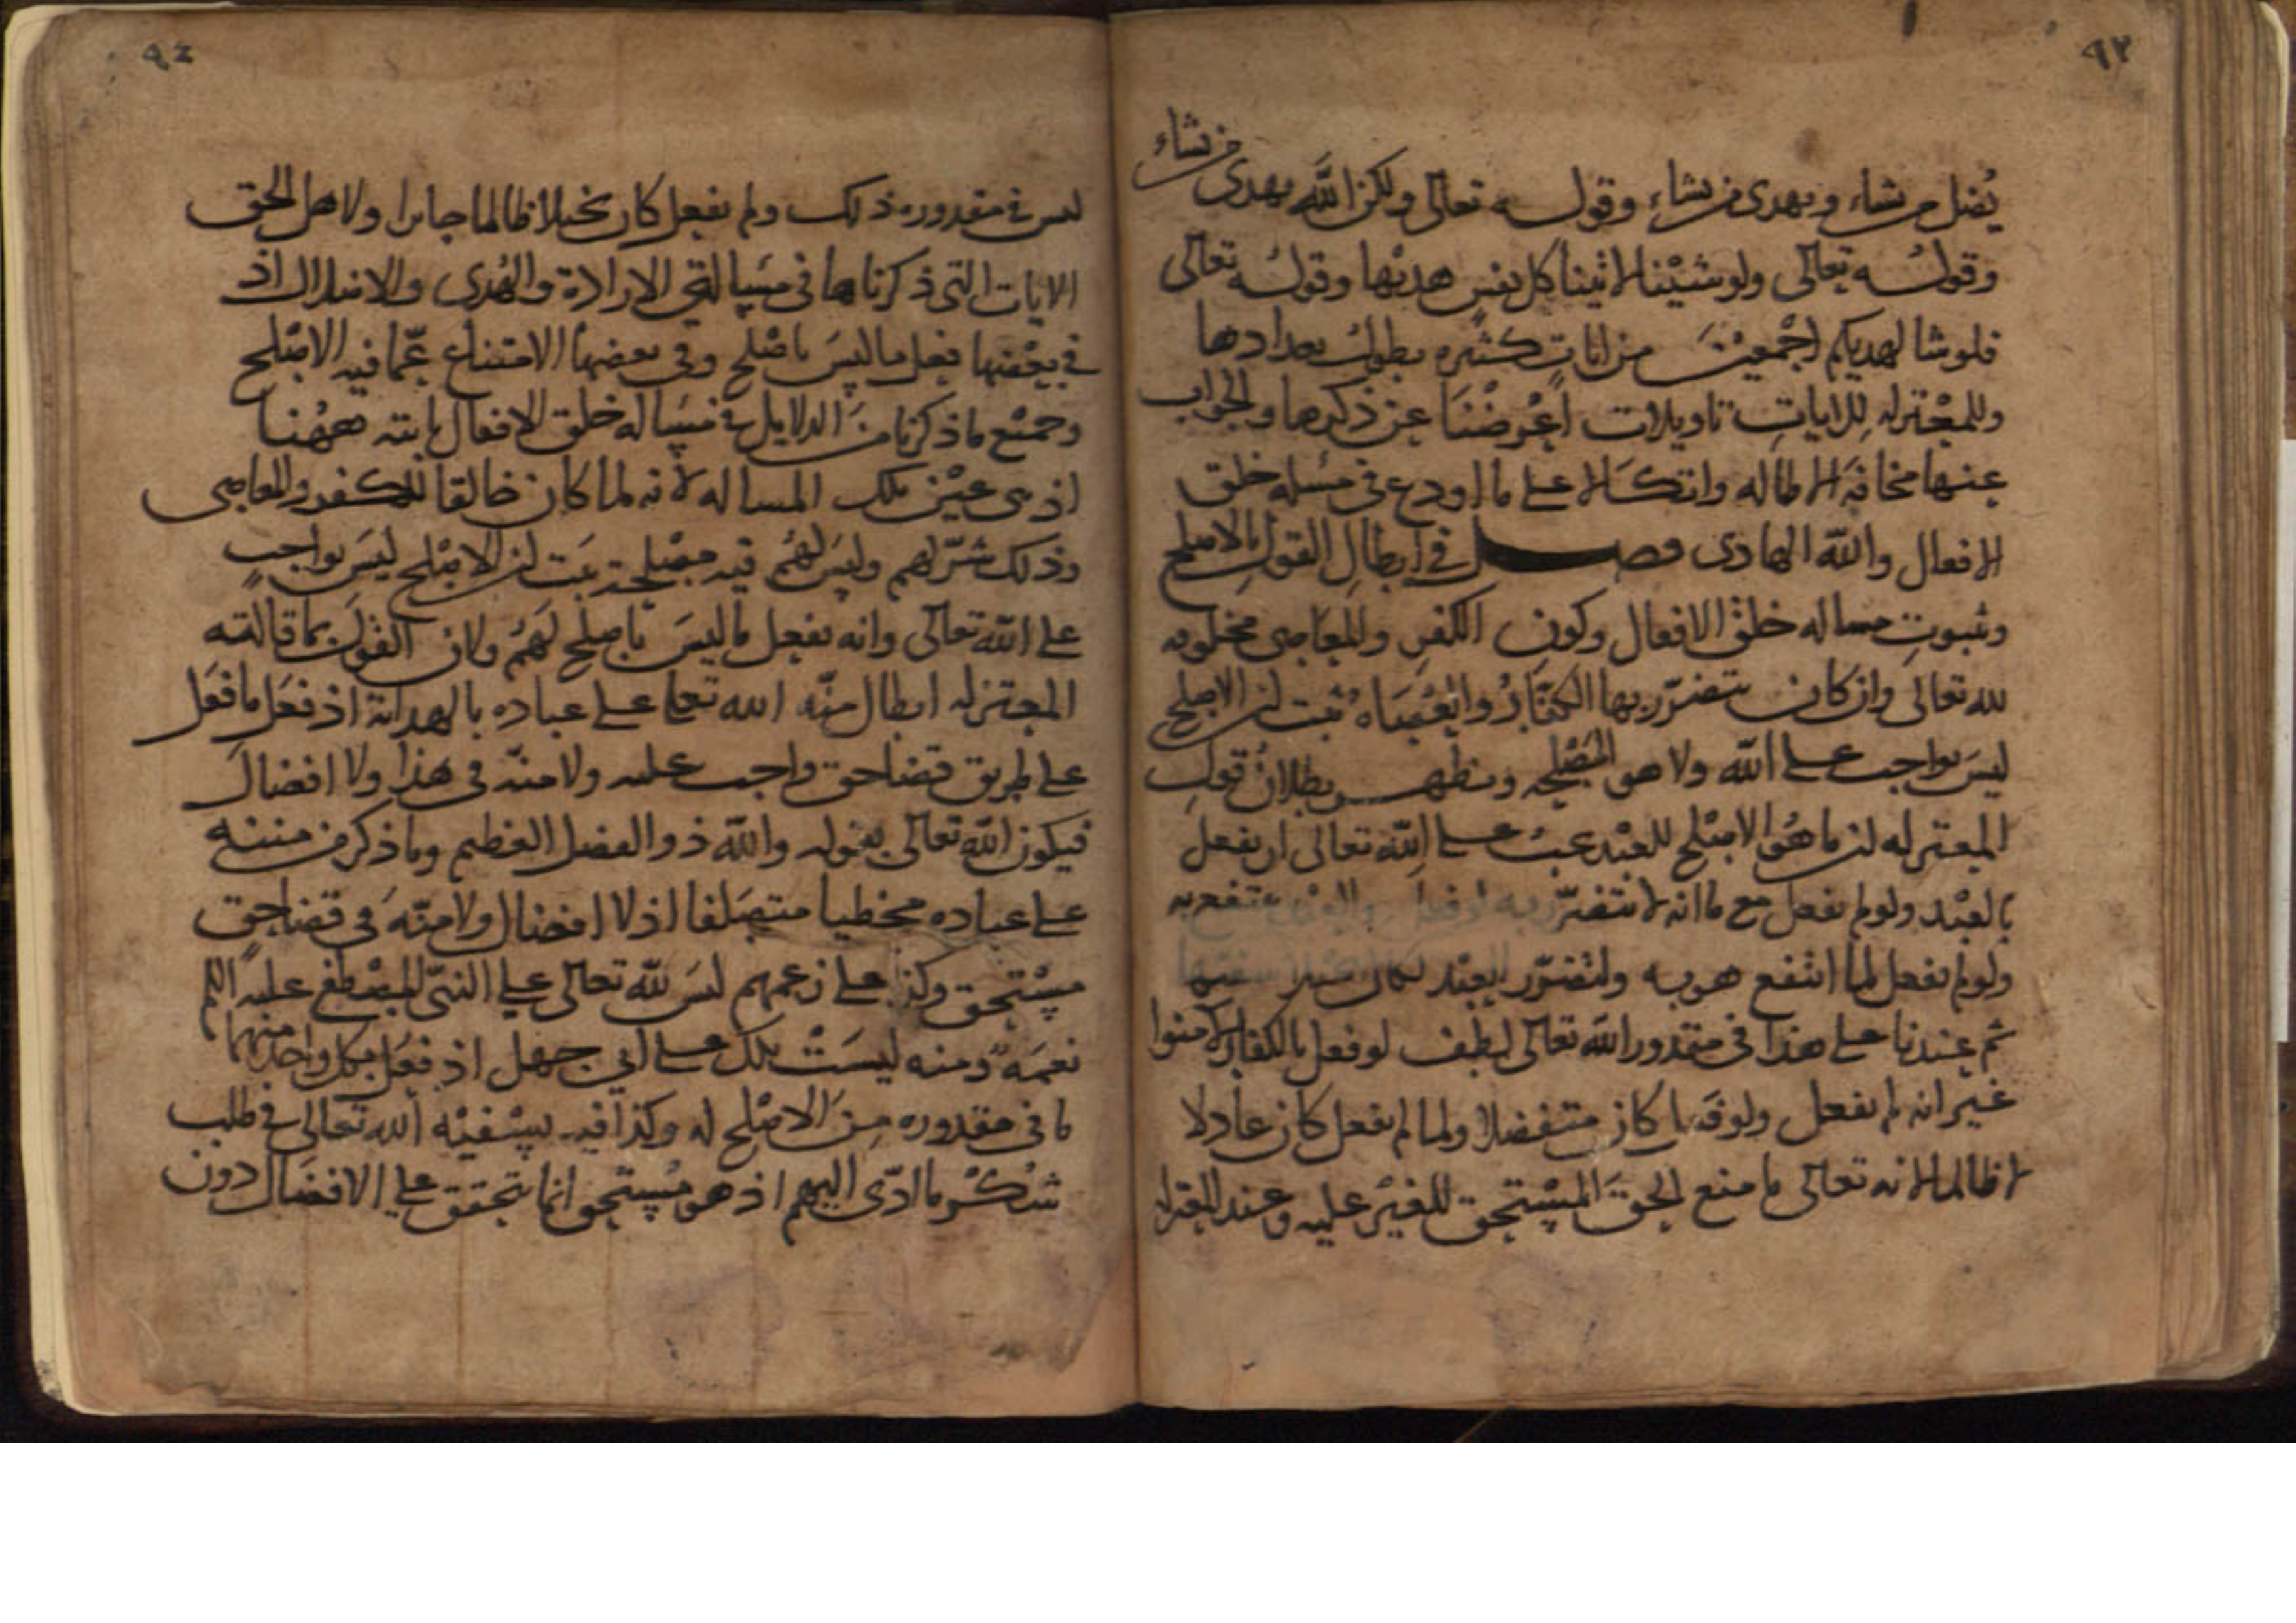 ٩٣
يُضل من يشاء ويهدى من يشاء وقوله تعالى ولكن الله يهدى من يشاء
وقوله تعالى ولو شئنا لاتينا كل نفس هديها وقوله تعالى
فلو شا لهديكم اجمعين من ايات كثيره يطول بعدادها
وللمعتزله للايات تاويلات اعرضنا عن ذكرها والجواب
عنها مخافة الاطاله واتكالا على ما اودع فى مسله خلق
الافعال والله الهادى فصل فى ابطال القول بالاصلح
وثبوت مساله خلق الافعال وكون الكفر والمعاصى مخلوقه
لله تعالى وان كان يتضرر بها الكفار والعصاه ثبت ان الاصلح
ليس بواجب على الله ولا هو المصلحه ويظهر بطلان قول
المعتزله ان ما هو الاصلح للعبد يجب على الله تعالى ان يفعل
بالعبد ولو لم يفعل مع ما انه لا يتضرر به لو فعل والعبد ينتفع به
ولو لم يفعل لما انتفع هو به ولتضرر العبد لكان
ثم عندنا على هذا فى مقدور الله تعالى لطف لو فعل بالكفار لامنوا
غير انه لم يفعل ولو فعل كان متفضلا ولما لم يفعل كان عادلا
لا ظالما لانه تعالى ما منع الحق المستحق للغير عليه وعند المعتزله
٩٤
ليس فى مقدوره ذلك ولو لم يفعل كان بخيلا ظالما جايرا ولاهل الحق
الايات التى ذكرناها فى مسالتى الارادة والهدى والاضلال اذ
فى بعضها فعل ما ليس باصلح وفى بعضها الامتناع عما فيه الاصلح
وجميع ما ذكرنا من الدلايل فى مساله خلق الافعال ثابته ههنا
اذ هى عين تلك المساله لانه لما كان خالقا للكفر والمعاصى
وذلك شر لهم وليس لهم فيه مصلحة ثبت ان الاصلح ليس بواجب
على الله تعالى وانه يفعل ما ليس باصلح لهم ولان القول بما قالته
المعتزله ابطال منه الله تعالى على عباده بالهداية اذ فعل ما فعل
على طريق قضا حق واجب عليه ولا منه فى هذا ولا افضال
فيكون الله تعالى بقوله والله ذو الفضل العظيم وما ذكر من مننه
على عباده مخطيا متصلفا اذ لا افضال ولا منه فى قضا حق
مستحق وكذا على زعمهم ليس لله تعالى على النبى المصطفى عليه السلم
نعمه ومنه ليست تلك على ابى جهل اذ فعل بكل واحد منهما
ما فى مقدوره من الاصلح له وكذا فيه تسفيه الله تعالى فى طلب
شكر ما ادى اليهم اذ هو مستحق انما يتحقق على الافضال دون